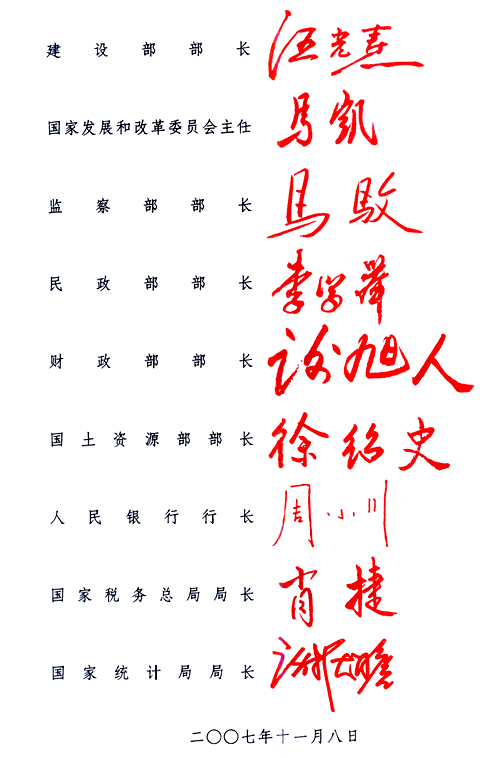 建设部部长 汪光焘
国家发展和改革委员会主任 马凯
监察部部长 马馼
民政部部长 李学举
财政部部长 谢旭人
国土资源部部长 徐绍史
人民银行行长 周小川
国家税务总局局长 肖捷
国家统计局局长 谢伏瞻
二〇〇七年十一月八日